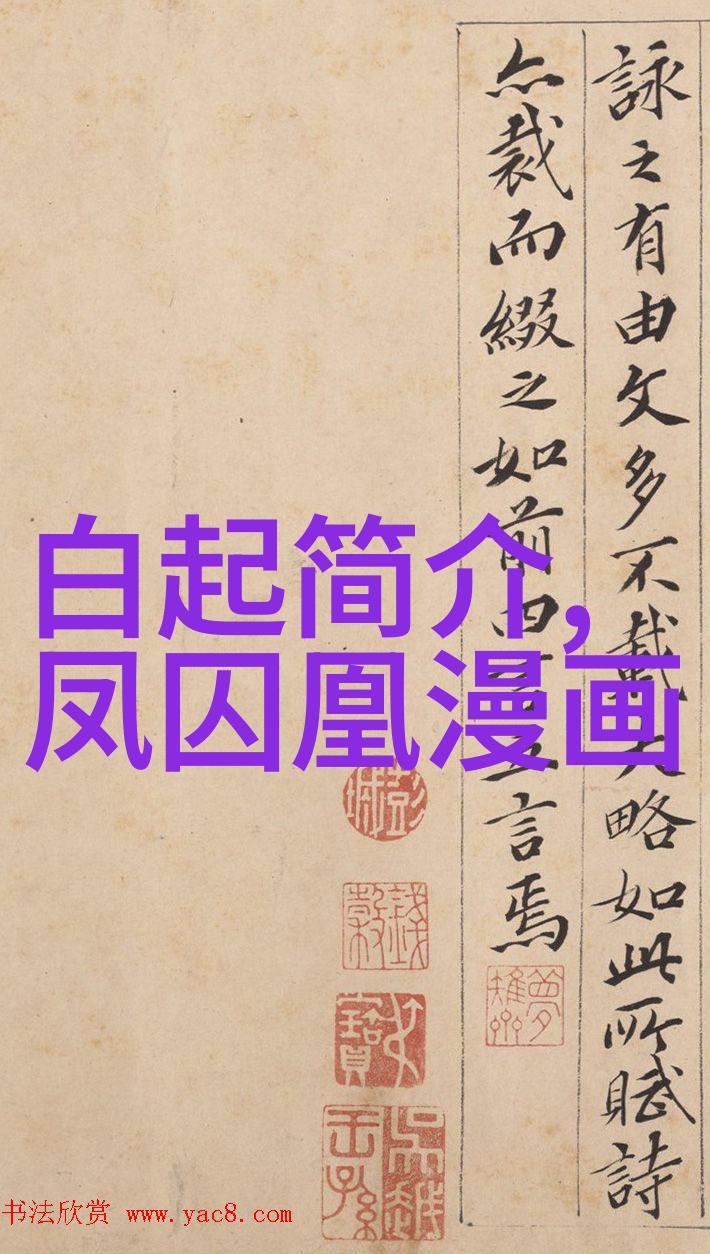 詠之有由文多不載大略如此所賦詩
亦裁而綴之如前四言五言焉
白起简介,
凤囚凰漫画
书法欣赏 www.yac8.com